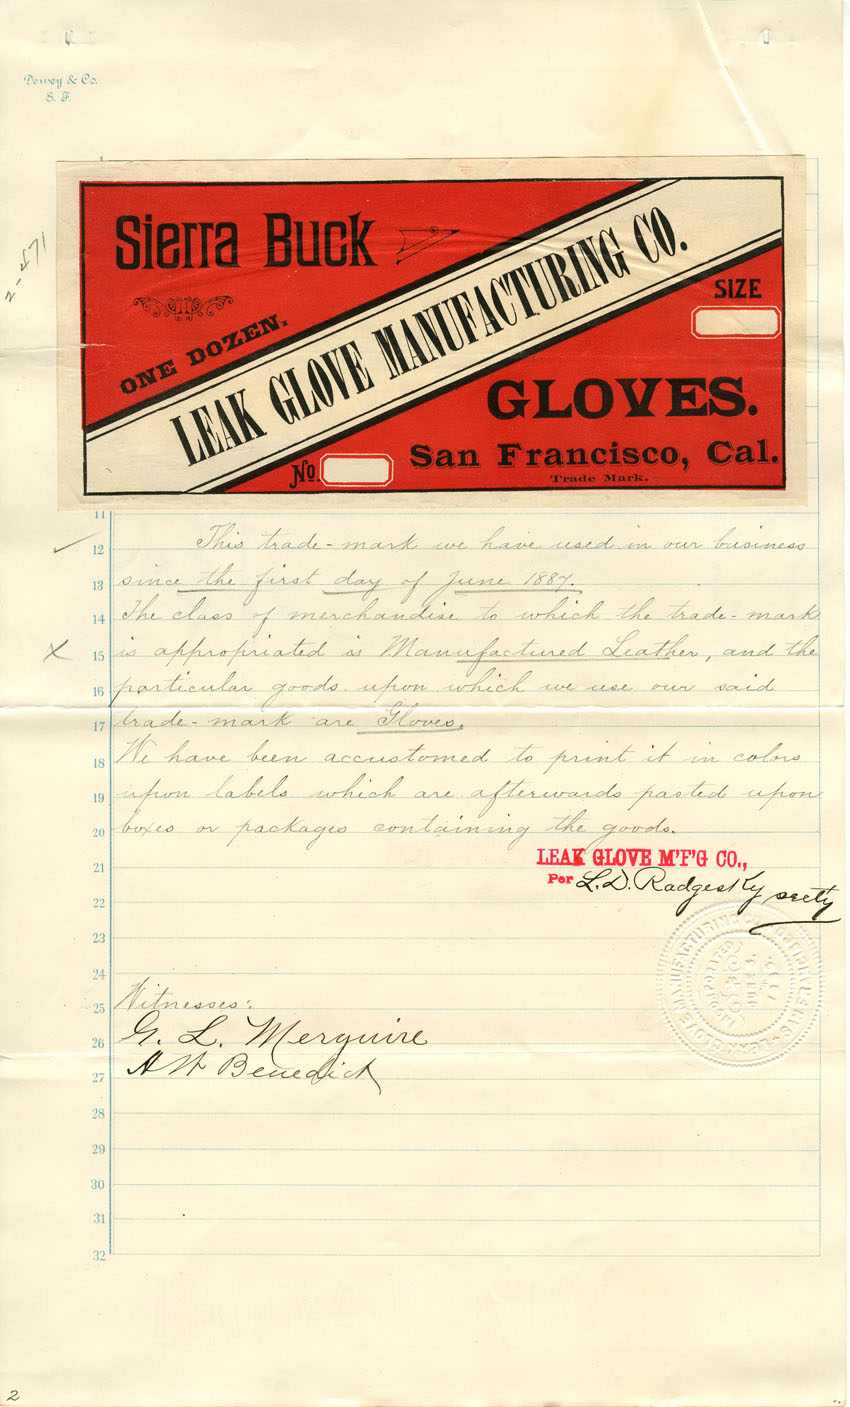 Dewey & Co.
S. F.
Sierra Buck
ONE DOZEN.
LEAK GLOVE MANUFACTURING CO.
SIZE
GLOVES.
No.
San Francisco, Cal.
Trade Mark.
11
12 This trade-mark we have used in our business
13 since the first day of June 1887.
14 The class of merchandise to which the trade-mark
15 is appropriated is Manufactured Leather, and the
16 particular goods upon which we use our said
17 trade-mark are Gloves.
18 We have been accustomed to print it in colors
19 upon labels which are afterwards pasted upon
20 boxes or packages containing the goods.
21 LEAK GLOVE M'F'G CO.,
Per L. D. Radgesky secty
22
23
24
25 Witnesses:
26 G. L. Merguire
27 A W Benedick
28
29
30
31
32
2